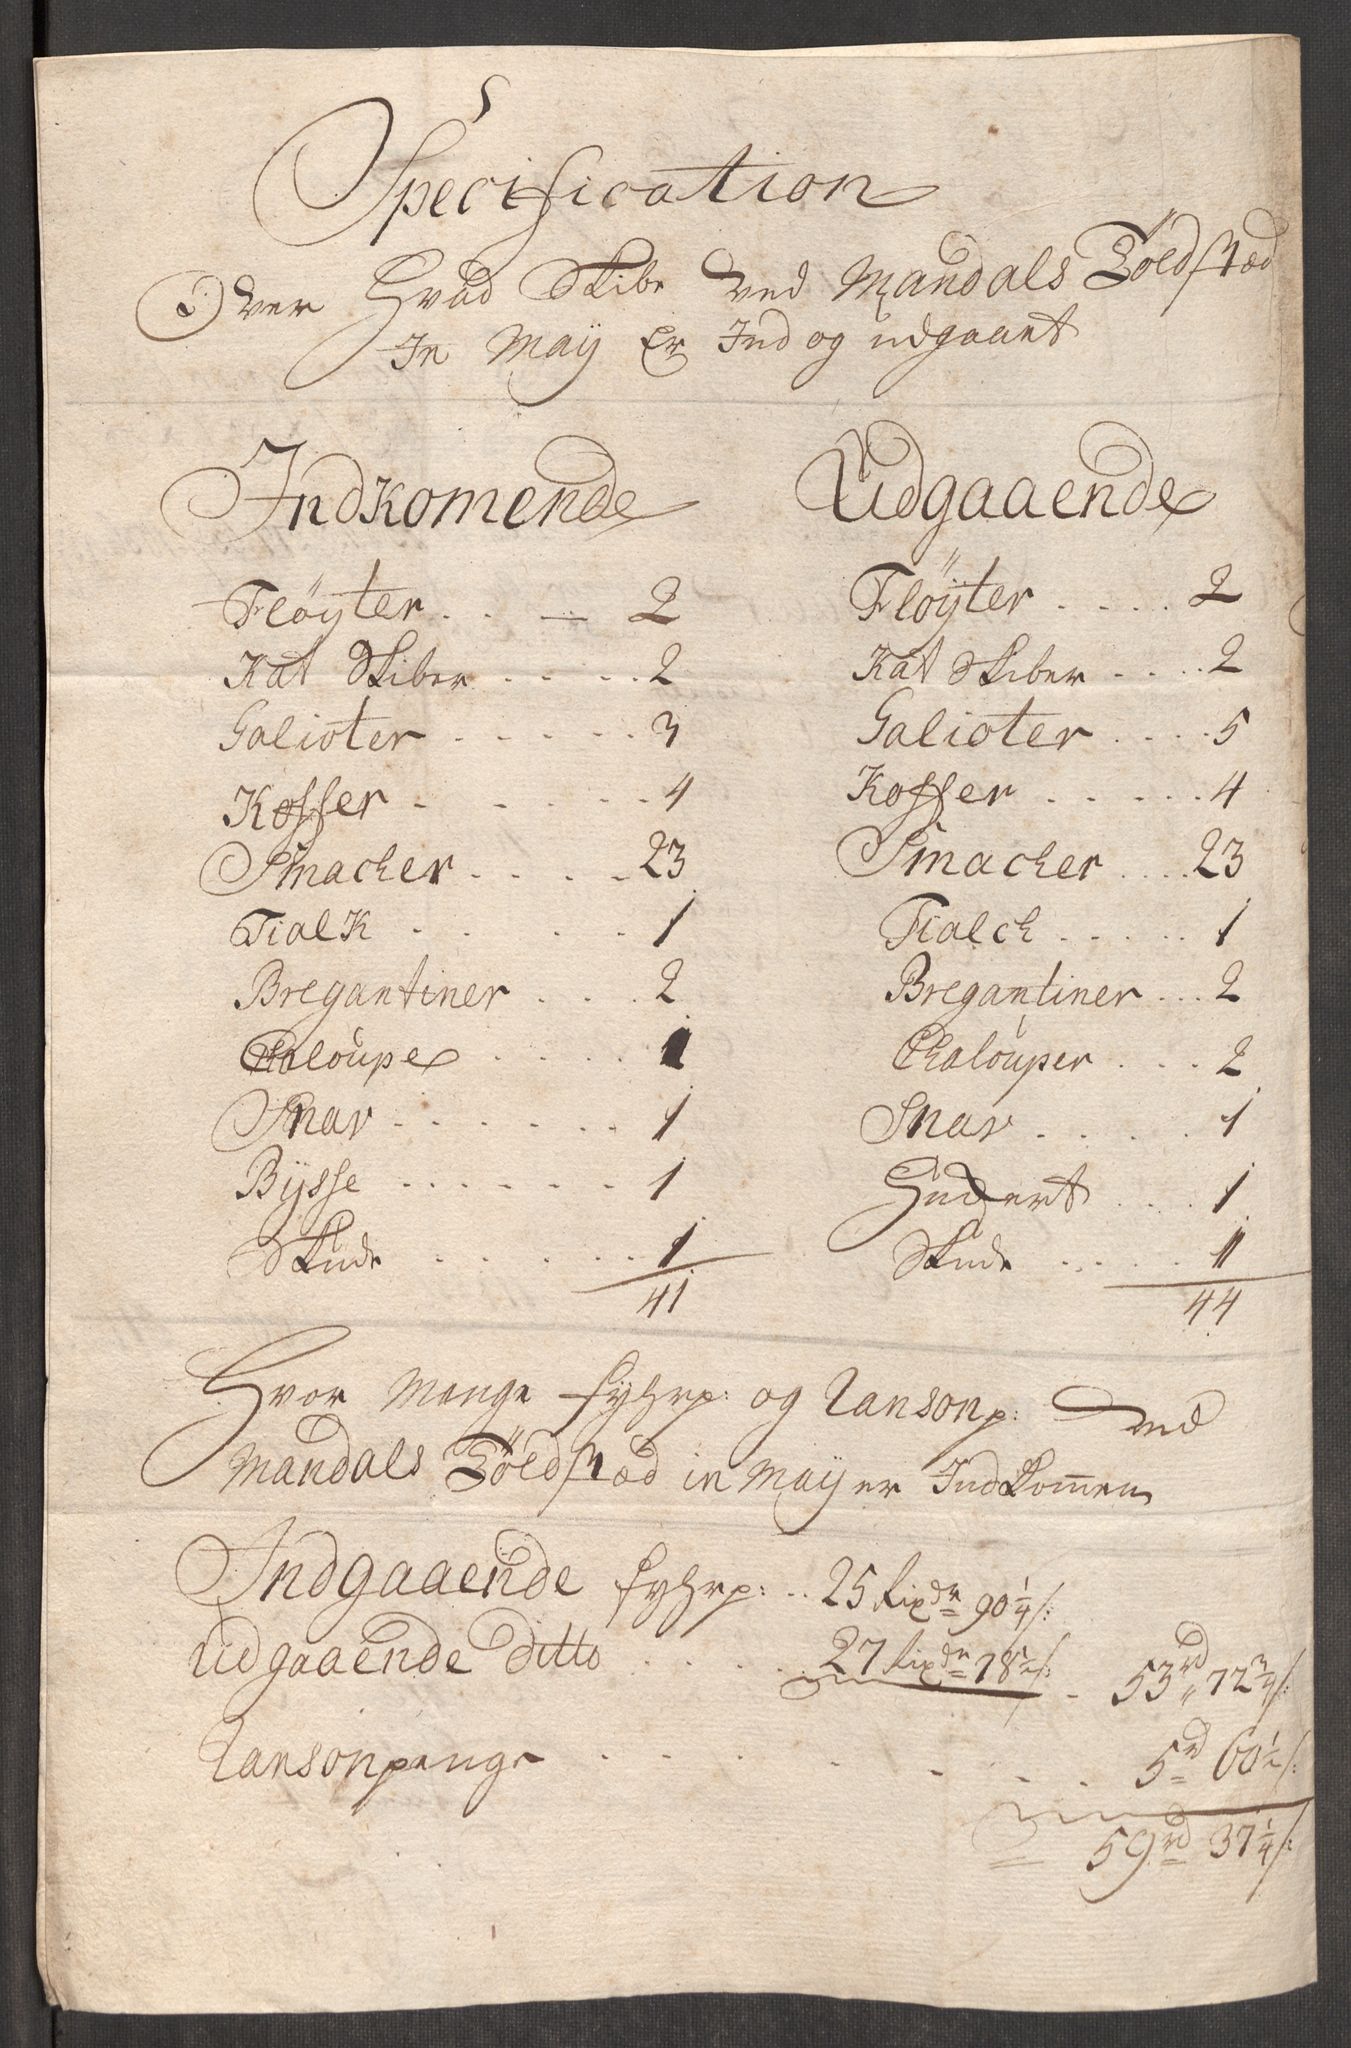 Specification
Over Hvad Skibe ved Mandals Töldstæd
In Maÿ Er Ind og udgaaet
Indkomende
Flöyter . . . — 2
Kat Skiber . . . . 2
Galioter . . . . . 3
Koffer . . . . . . 4
Smacker . . . . 23
Tialk . . . . . 1
Bregantiner . . . 2
Chaloupe . . . . 1
Snav . . . . . . 1
Bÿsse . . . . . . 1
Skude . . . . . . 1
41
Udgaaende
Flöÿter . . . . 2
Kat Skiber . . . . 2
Galioter . . . . 5
Koffer . . . . . 4
Smacker . . . . 23
Tialch . . . . . 1
Bregantiner . . . 2
Chalouper . . . 2
Snav . . . . . 1
Huckert . . . . 1
Skude . . . . . 1
44
Hvor Mange fyhrp: og Ransonp: ved
Mandals Töldstæd in Maÿ er Indkommen
Indgaaende fyhrp: . . 25 Rixdr 90 1/4 ß:
Udgaaende Ditto . . . . 27 Rixdr 78 1/2 ß: - 53 rd 72 3/4 ß:
Ransonpenge . . . . . . . . 5 rd 60 1/2 ß:
59 rd 37 1/4 ß: